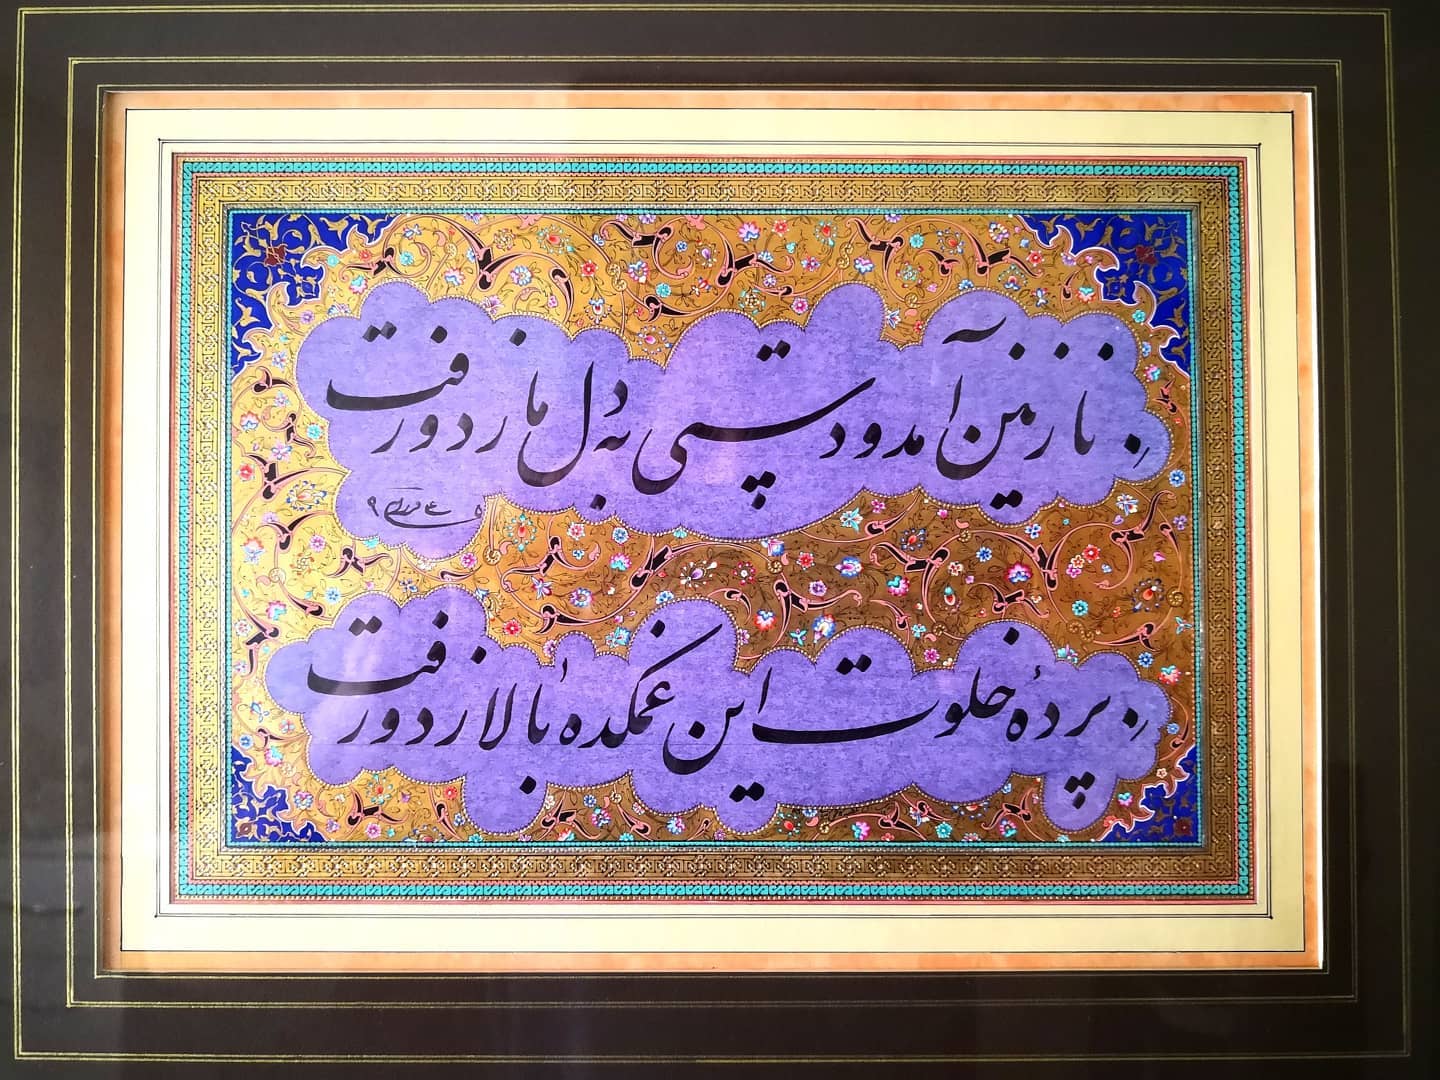 نازنین آمد و دستی به دل ما زد و رفت
پردهٔ خلوت این غمکده بالا زد و رفت